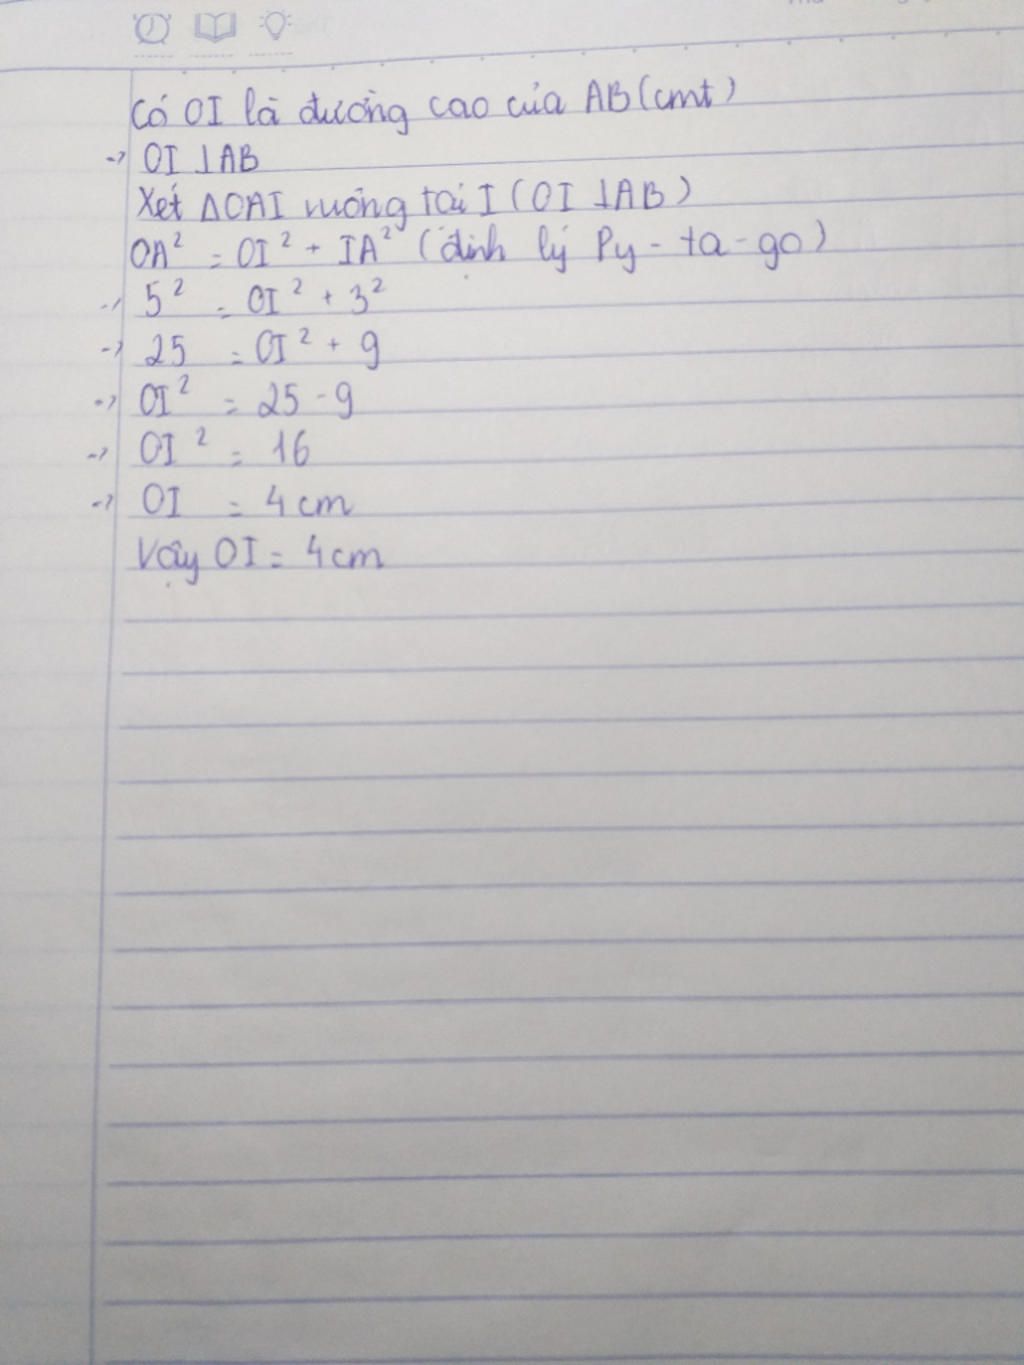 Có OI là đường cao của AB (cmt)
-> OI ⊥ AB
Xét ΔOAI vuông tại I (OI ⊥ AB)
OA² = OI² + IA² (định lý Py-ta-go)
-> 5² = OI² + 3²
-> 25 = OI² + 9
-> OI² = 25 - 9
-> OI² = 16
-> OI = 4 cm
Vậy OI = 4 cm